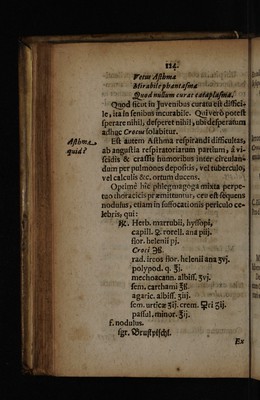 114.
Vetus Asthma
Mirabile phantasma
Quod nullum curat cataplasma.
Quod sicut in Juvenibus curatu est diffici-
le, ita in senibus incurabile. Qui verò potest
sperare nihil, desperet nihil, ubi desperatum
adhuc Crocus solabitur.
Asthma
quid?
Est autem Asthma respirandi difficultas,
ab angustia respiratoriarum partium, á vi-
scidis & crassis humoribus inter circulan-
dum per pulmones depositis, vel tuberculo,
vel calculis &c. ortum ducens.
Optimè hîc phlegmagoga mixta perpe-
tuo thoracicis præmittuntur, ceu est sequens
nodulus, etiam in suffocationis periculo ce-
lebris, qui:
℞. Herb. marrubii, hyssopi,
capill. ♀. rorell. ana piij.
flor. helenii pj.
Croci
rad. ireos flor. helenii ana ʒvj.
polypod. q. ℥j.
mechoacann. albiss. ʒvj.
sem. carthami
agaric. albiss. ʒiij.
sem. urticæ ʒij. crem.
passul. minor. ℥ij.
f. nodulus.
sgr. Brustpischl.
Ex